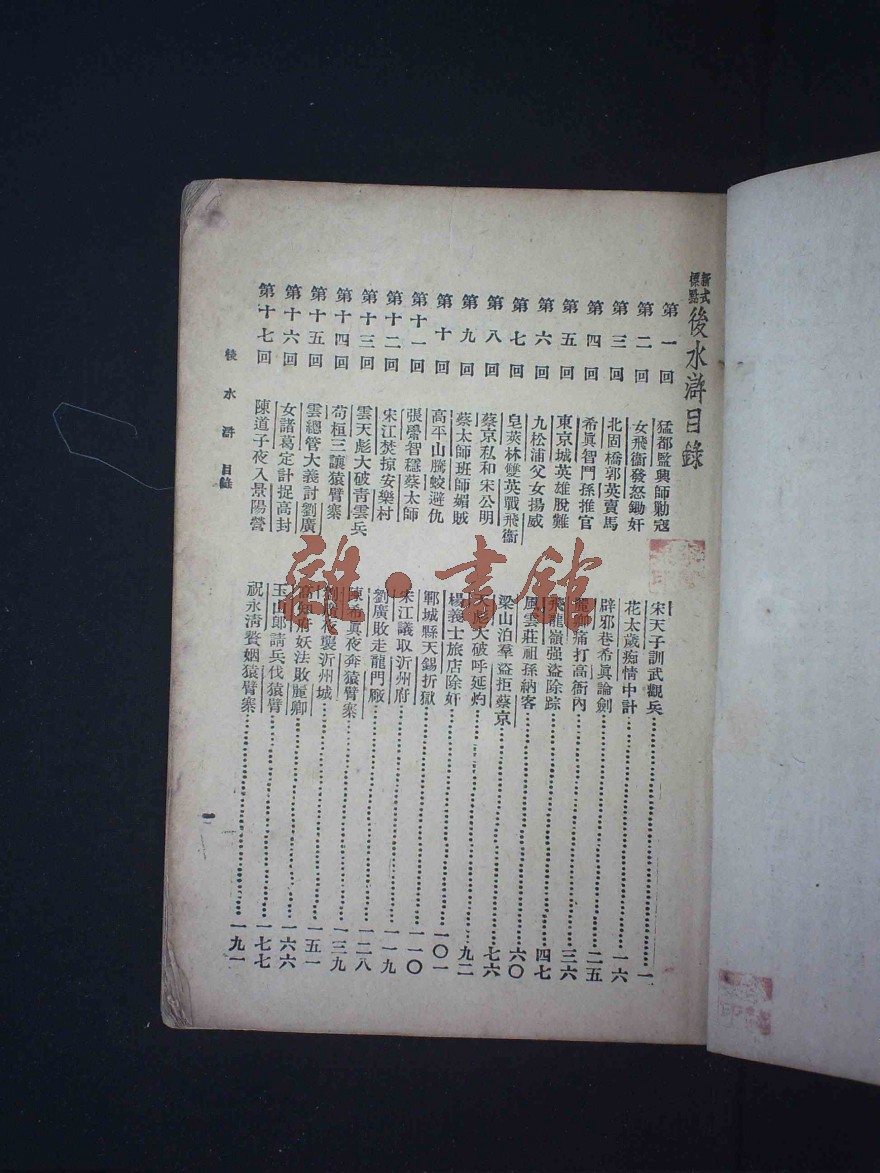 新式標點 後水滸目錄
第一回 猛都監興師剿寇 宋天子訓武觀兵 一
第二回 女飛衞發怒鋤奸 花太歲痴情中計 一六
第三回 北固橋郭英賣馬 辟邪巷希眞論劍 二五
第四回 希眞智鬥孫推官 麗卿痛打高衙內 三六
第五回 東京城英雄脫難 飛龍嶺强盜除踪 四七
第六回 九松浦父女揚威 風雲莊祖孫納客 六〇
第七回 皂莢林雙英戰飛衞 梁山泊羣盜拒蔡京 七六
第八回 蔡京私和宋公明 天彪大破呼延灼 九二
第九回 蔡太師班師媚賊 楊義士旅店除奸 一〇一
第十回 高平山騰蛟避仇 鄆城縣天錫折獄 一一〇
第十一回 張觷智穩蔡太師 宋江議取沂州府 一一九
第十二回 宋江焚掠安樂村 劉廣敗走龍門廠 一二八
第十三回 雲天彪大破靑雲兵 陳希眞夜奔猿臂寨 一三九
第十四回 苟桓三讓猿臂寨 劉廣夜襲沂州城 一五一
第十五回 雲總管大義討劉廣 高知府妖法敗麗卿 一六六
第十六回 女諸葛定計捉高封 玉山郎請兵伐猿臂 一七七
第十七回 陳道子夜入景陽營 祝永淸贅姻猿臂寨 一九一
後水滸 目錄
一